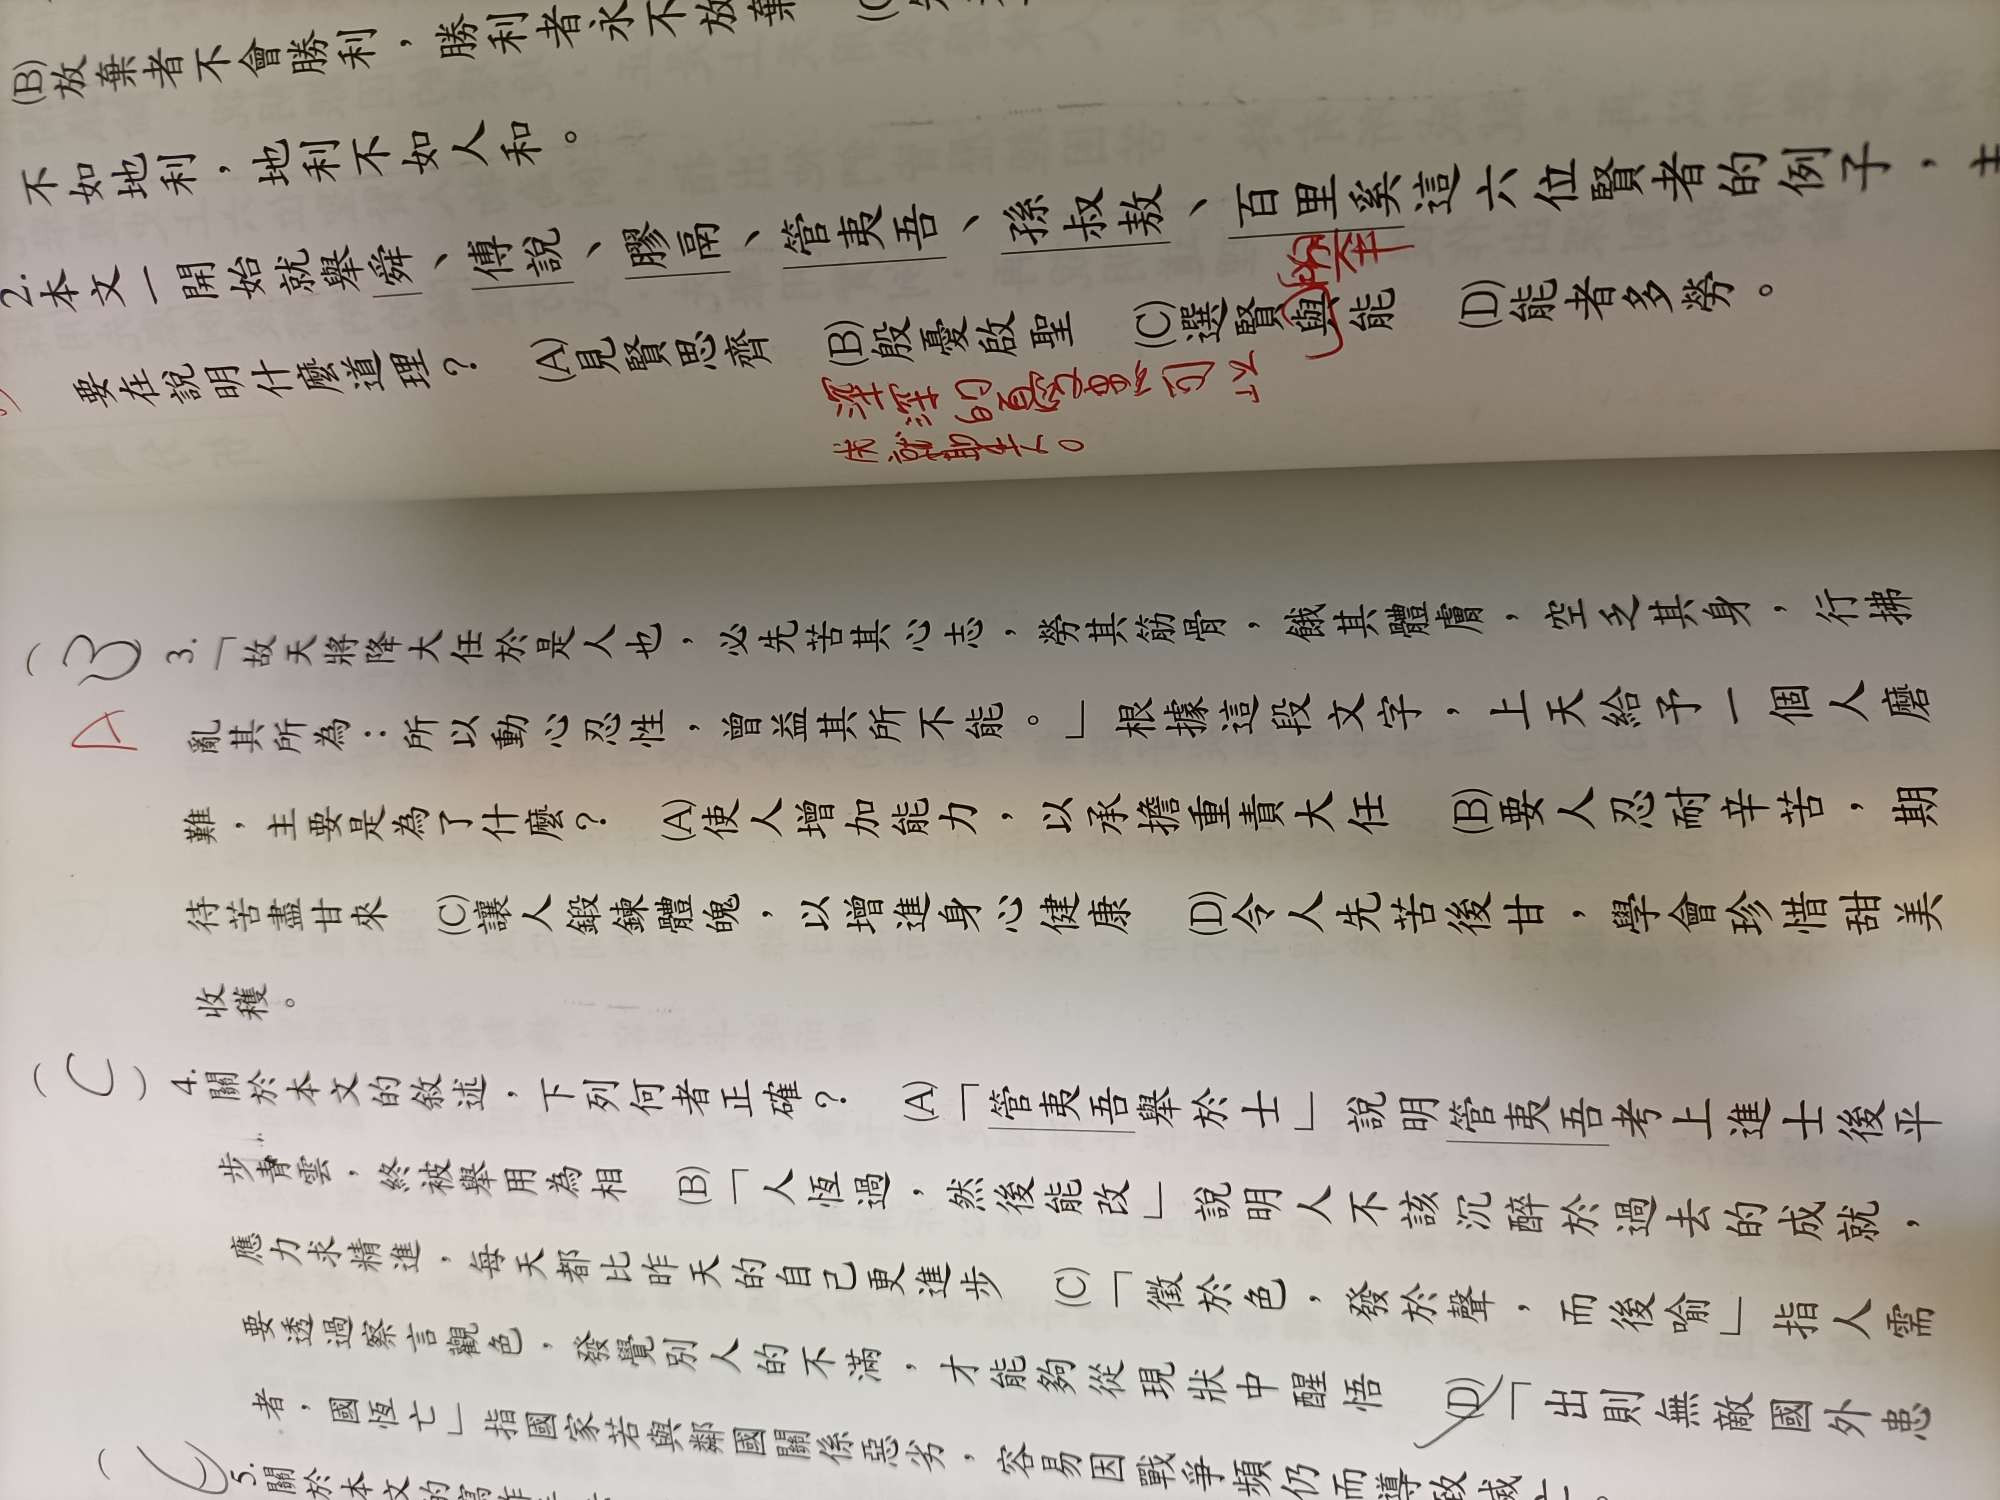 (B)放棄者不會勝利，勝利者永不放棄
不如地利，地利不如人和。
2.本文一開始就舉舜、傅說、膠鬲、管夷吾、孫叔敖、百里奚這六位賢者的例子，主
要在說明什麼道理？　(A)見賢思齊　(B)殷憂啟聖　(C)選賢與能　(D)能者多勞。
深深的憂患可以
成就聖人。
(B)
A
3.「故天將降大任於是人也，必先苦其心志，勞其筋骨，餓其體膚，空乏其身，行拂
亂其所為：所以動心忍性，曾益其所不能。」根據這段文字，上天給予一個人磨
難，主要是為了什麼？　(A)使人增加能力，以承擔重責大任　(B)要人忍耐辛苦，期
待苦盡甘來　(C)讓人鍛鍊體魄，以增進身心健康　(D)令人先苦後甘，學會珍惜甜美
收穫。
(C)
4.關於本文的敘述，下列何者正確？　(A)「管夷吾舉於士」說明管夷吾考上進士後平
步青雲，終被舉用為相　(B)「人恆過，然後能改」說明人不該沉醉於過去的成就，
應力求精進，每天都比昨天的自己更進步　(C)「徵於色，發於聲，而後喻」指人需
要透過察言觀色，發覺別人的不滿，才能夠從現狀中醒悟　(D)「出則無敵國外患
者，國恆亡」指國家若與鄰國關係惡劣，容易因戰爭頻仍而導致滅亡。
5.關於本文的寫作